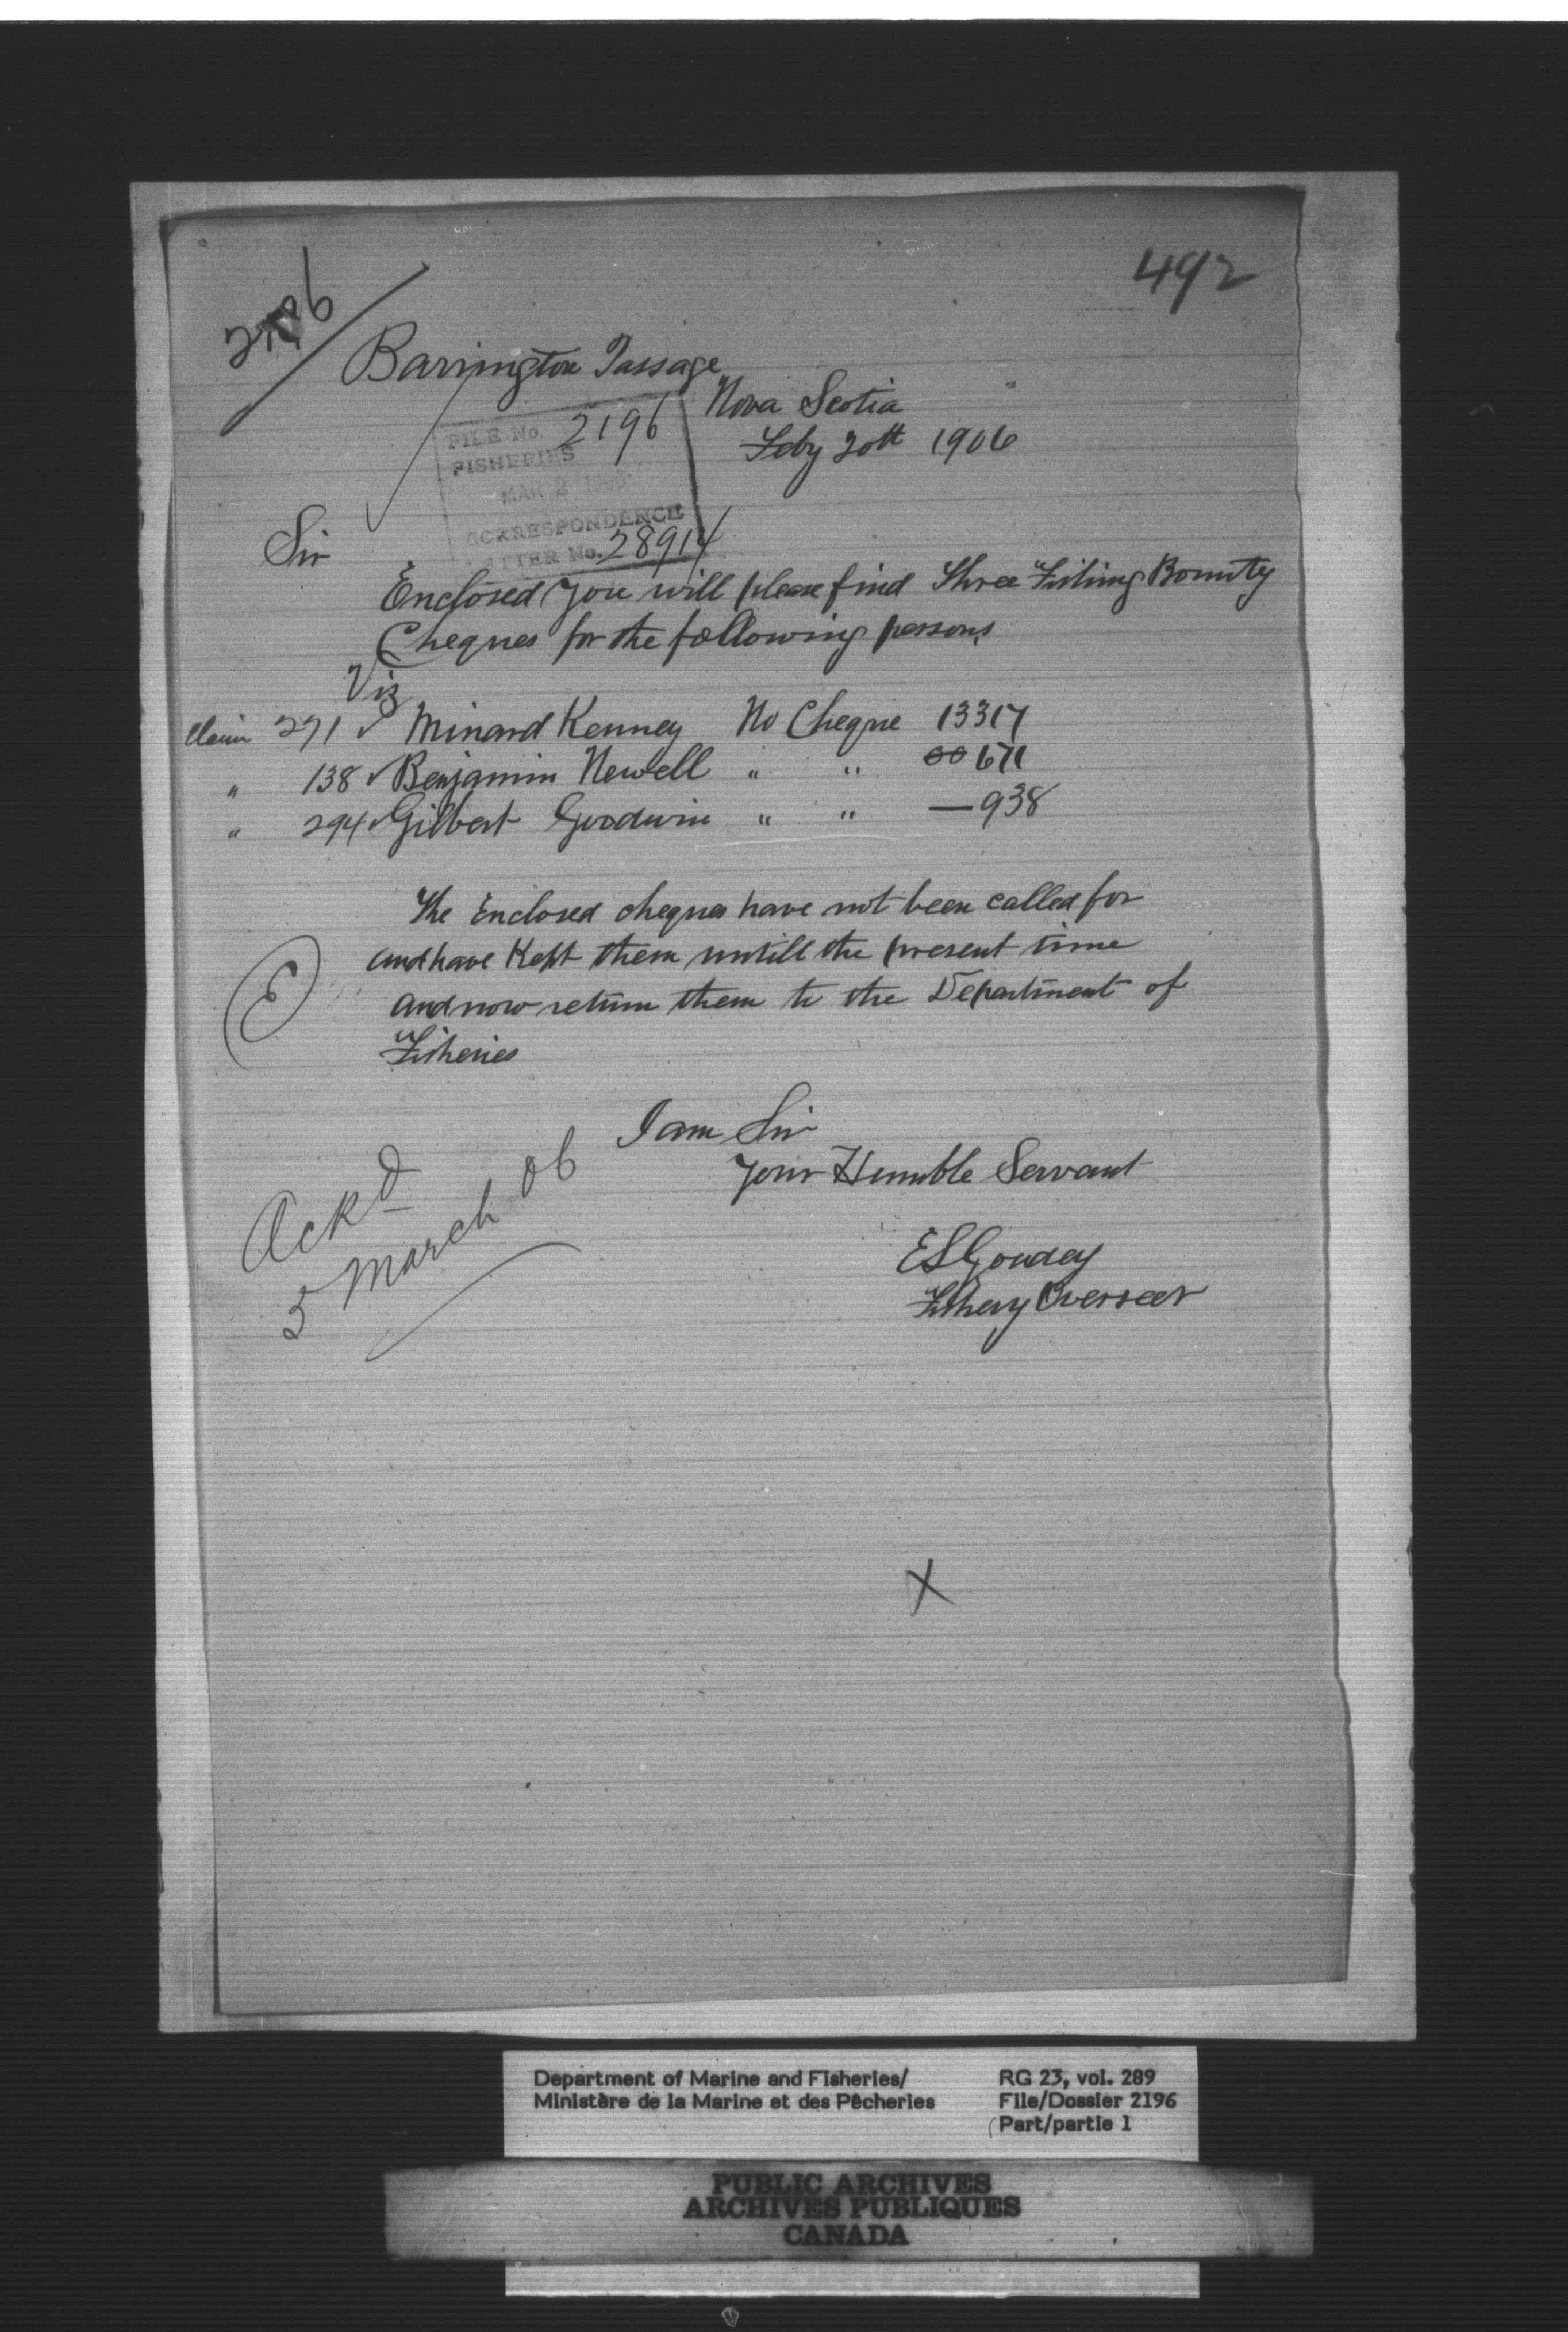 492
Barrington Passage
Nova Scotia
Feby 20th 1906
FILE No. 2196
FISHERIES
MAR 2 1906
CORRESPONDENCE
LETTER No. 28914
Sir
Enclosed you will please find Three Fishing Bounty
Cheques for the following persons
Viz
Claim 271 ✓ Minard Kenney No Cheque 13317
" 138 ✓ Benjamin Newell " " 00671
" 294 ✓ Gilbert Goodwin " " — 938
The Enclosed cheques have not been called for
and have Kept them untill the present time
and now return them to the Department of
Fisheries
E
I am Sir
Your Humble Servant
E S Goudey
Fishery Overseer
Ackd
5 March 06
X
Department of Marine and Fisheries/
Ministère de la Marine et des Pêcheries
RG 23, vol. 289
File/Dossier 2196
(Part/partie 1
PUBLIC ARCHIVES
ARCHIVES PUBLIQUES
CANADA